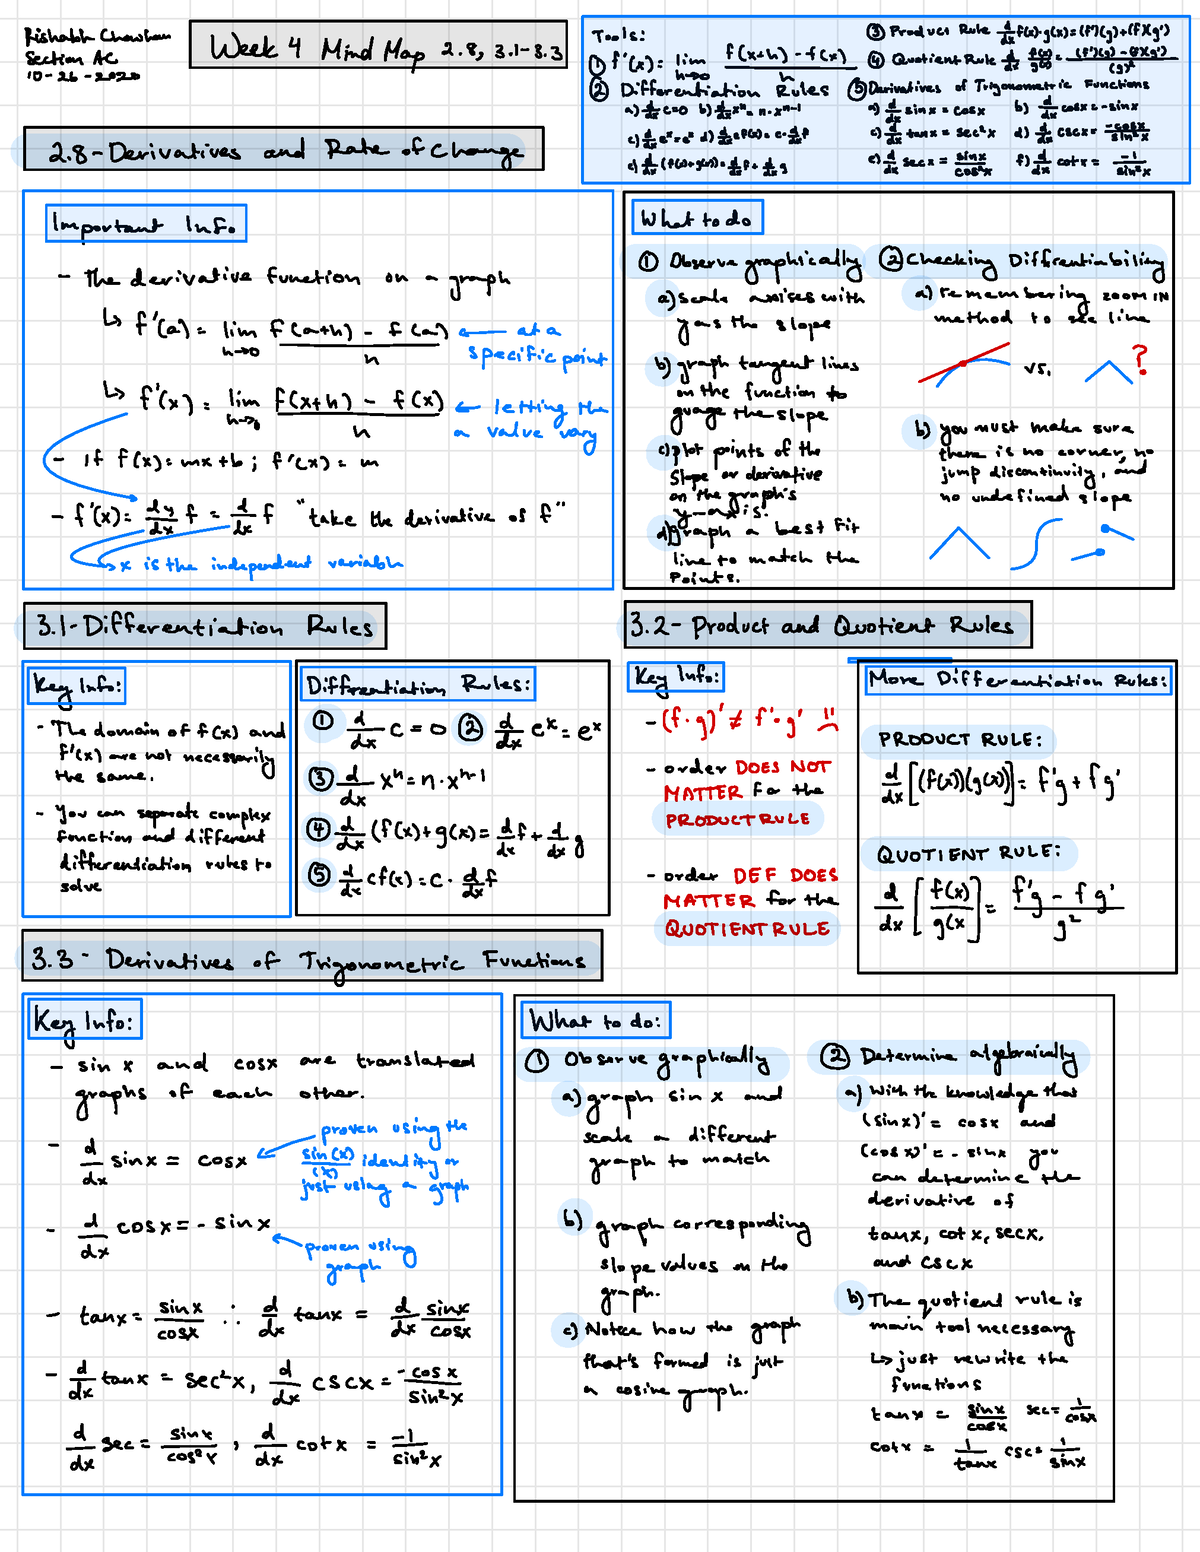 Rishabh Chowhan
Section AC
10-26-2020
Week 4 Mind Map 2.8, 3.1-3.3
Tools:
① f'(x) = lim h→0 f(x+h) - f(x) / h
② Differentiation Rules
a) d/dx c=0 b) d/dx xⁿ = n·xⁿ⁻¹
c) d/dx eˣ = eˣ d) d/dx cf(x) = c·d/dx f
e) d/dx (f(x)+g(x)) = d/dx f + d/dx g
③ Product Rule d/dx f(x)·g(x) = (f')(g)+(f)(g')
④ Quotient Rule d/dx f(x)/g(x) = (f')(g) - (f)(g') / (g)²
⑤ Derivatives of Trigonometric Functions
a) d/dx sinx = cosx b) d/dx cosx = -sinx
c) d/dx tanx = sec²x d) d/dx cscx = -cosx/sin²x
e) d/dx secx = sinx/cos²x f) d/dx cotx = -1/sin²x
2.8 - Derivatives and Rate of Change
Important Info.
- The derivative function on a graph
↳ f'(a) = lim h→0 f(a+h) - f(a) / h ← at a
specific point
↳ f'(x) = lim h→0 f(x+h) - f(x) / h ← letting the
a value vary
- if f(x) = mx+b ; f'(x) = m
- f'(x) = dy/dx f = d/dx f "take the derivative of f"
x is the independent variable
What to do
① Observe graphically
a) scale axises with
y as the slope
b) graph tangent lines
on the function to
guage the slope
c) plot points of the
slope or derivative
on the graph's
y-axis.
d) graph a best fit
line to match the
Points.
② Checking Differentiabiliny
a) remembering zoom IN
method to see line
vs. ?
b) you must make sure
there is no corner, no
jump discontinuity, and
no undefined slope
3.1 - Differentiation Rules
Key Info:
- The domain of f(x) and
f'(x) are not necessarily
the same.
- You can seperate complex
function and different
differentiation rules to
solve
Diffrentiation Rules:
① d/dx c = 0 ② d/dx eˣ = eˣ
③ d/dx xⁿ = n·xⁿ⁻¹
④ d/dx (f(x)+g(x) = d/dx f + d/dx g
⑤ d/dx cf(x) = c· d/dx f
3.2 - Product and Quotient Rules
Key Info:
- (f·g)' ≠ f'·g'
- order DOES NOT
MATTER for the
PRODUCT RULE
- order DEF DOES
MATTER for the
QUOTIENT RULE
More Differentiation Rules:
PRODUCT RULE:
d/dx [(f(x))(g(x))] = f'g + fg'
QUOTIENT RULE:
d/dx [f(x)/g(x] = f'g - fg' / g²
3.3 - Derivatives of Trigonometric Functions
Key Info:
- sin x and cosx are translated
graphs of each other.
- d/dx sinx = cosx ← proven using the
sin(x)/(x) identity or
just using a graph
- d/dx cosx = -sinx ← proven using
graph
- tanx = sinx/cosx ∴ d/dx tanx = d/dx sinx/cosx
- d/dx tanx = sec²x, d/dx cscx = -cosx/sin²x
d/dx sec = sinx/cos²x , d/dx cotx = -1/sin²x
What to do:
① Observe graphically
a) graph sin x and
scale a different
graph to match
b) graph corresponding
slope values on the
graph.
c) Notice how the graph
that's formed is just
a cosine graph.
② Determine algebraically
a) With the knowledge that
(sinx)' = cosx and
(cosx)' = -sinx you
can determine the
derivative of
tanx, cot x, secx,
and cscx
b) The quotient rule is
main tool necessary
↳ just rewrite the
functions
tanx = sinx/cosx sec = 1/cosx
cotx = 1/tanx csc = 1/sinx